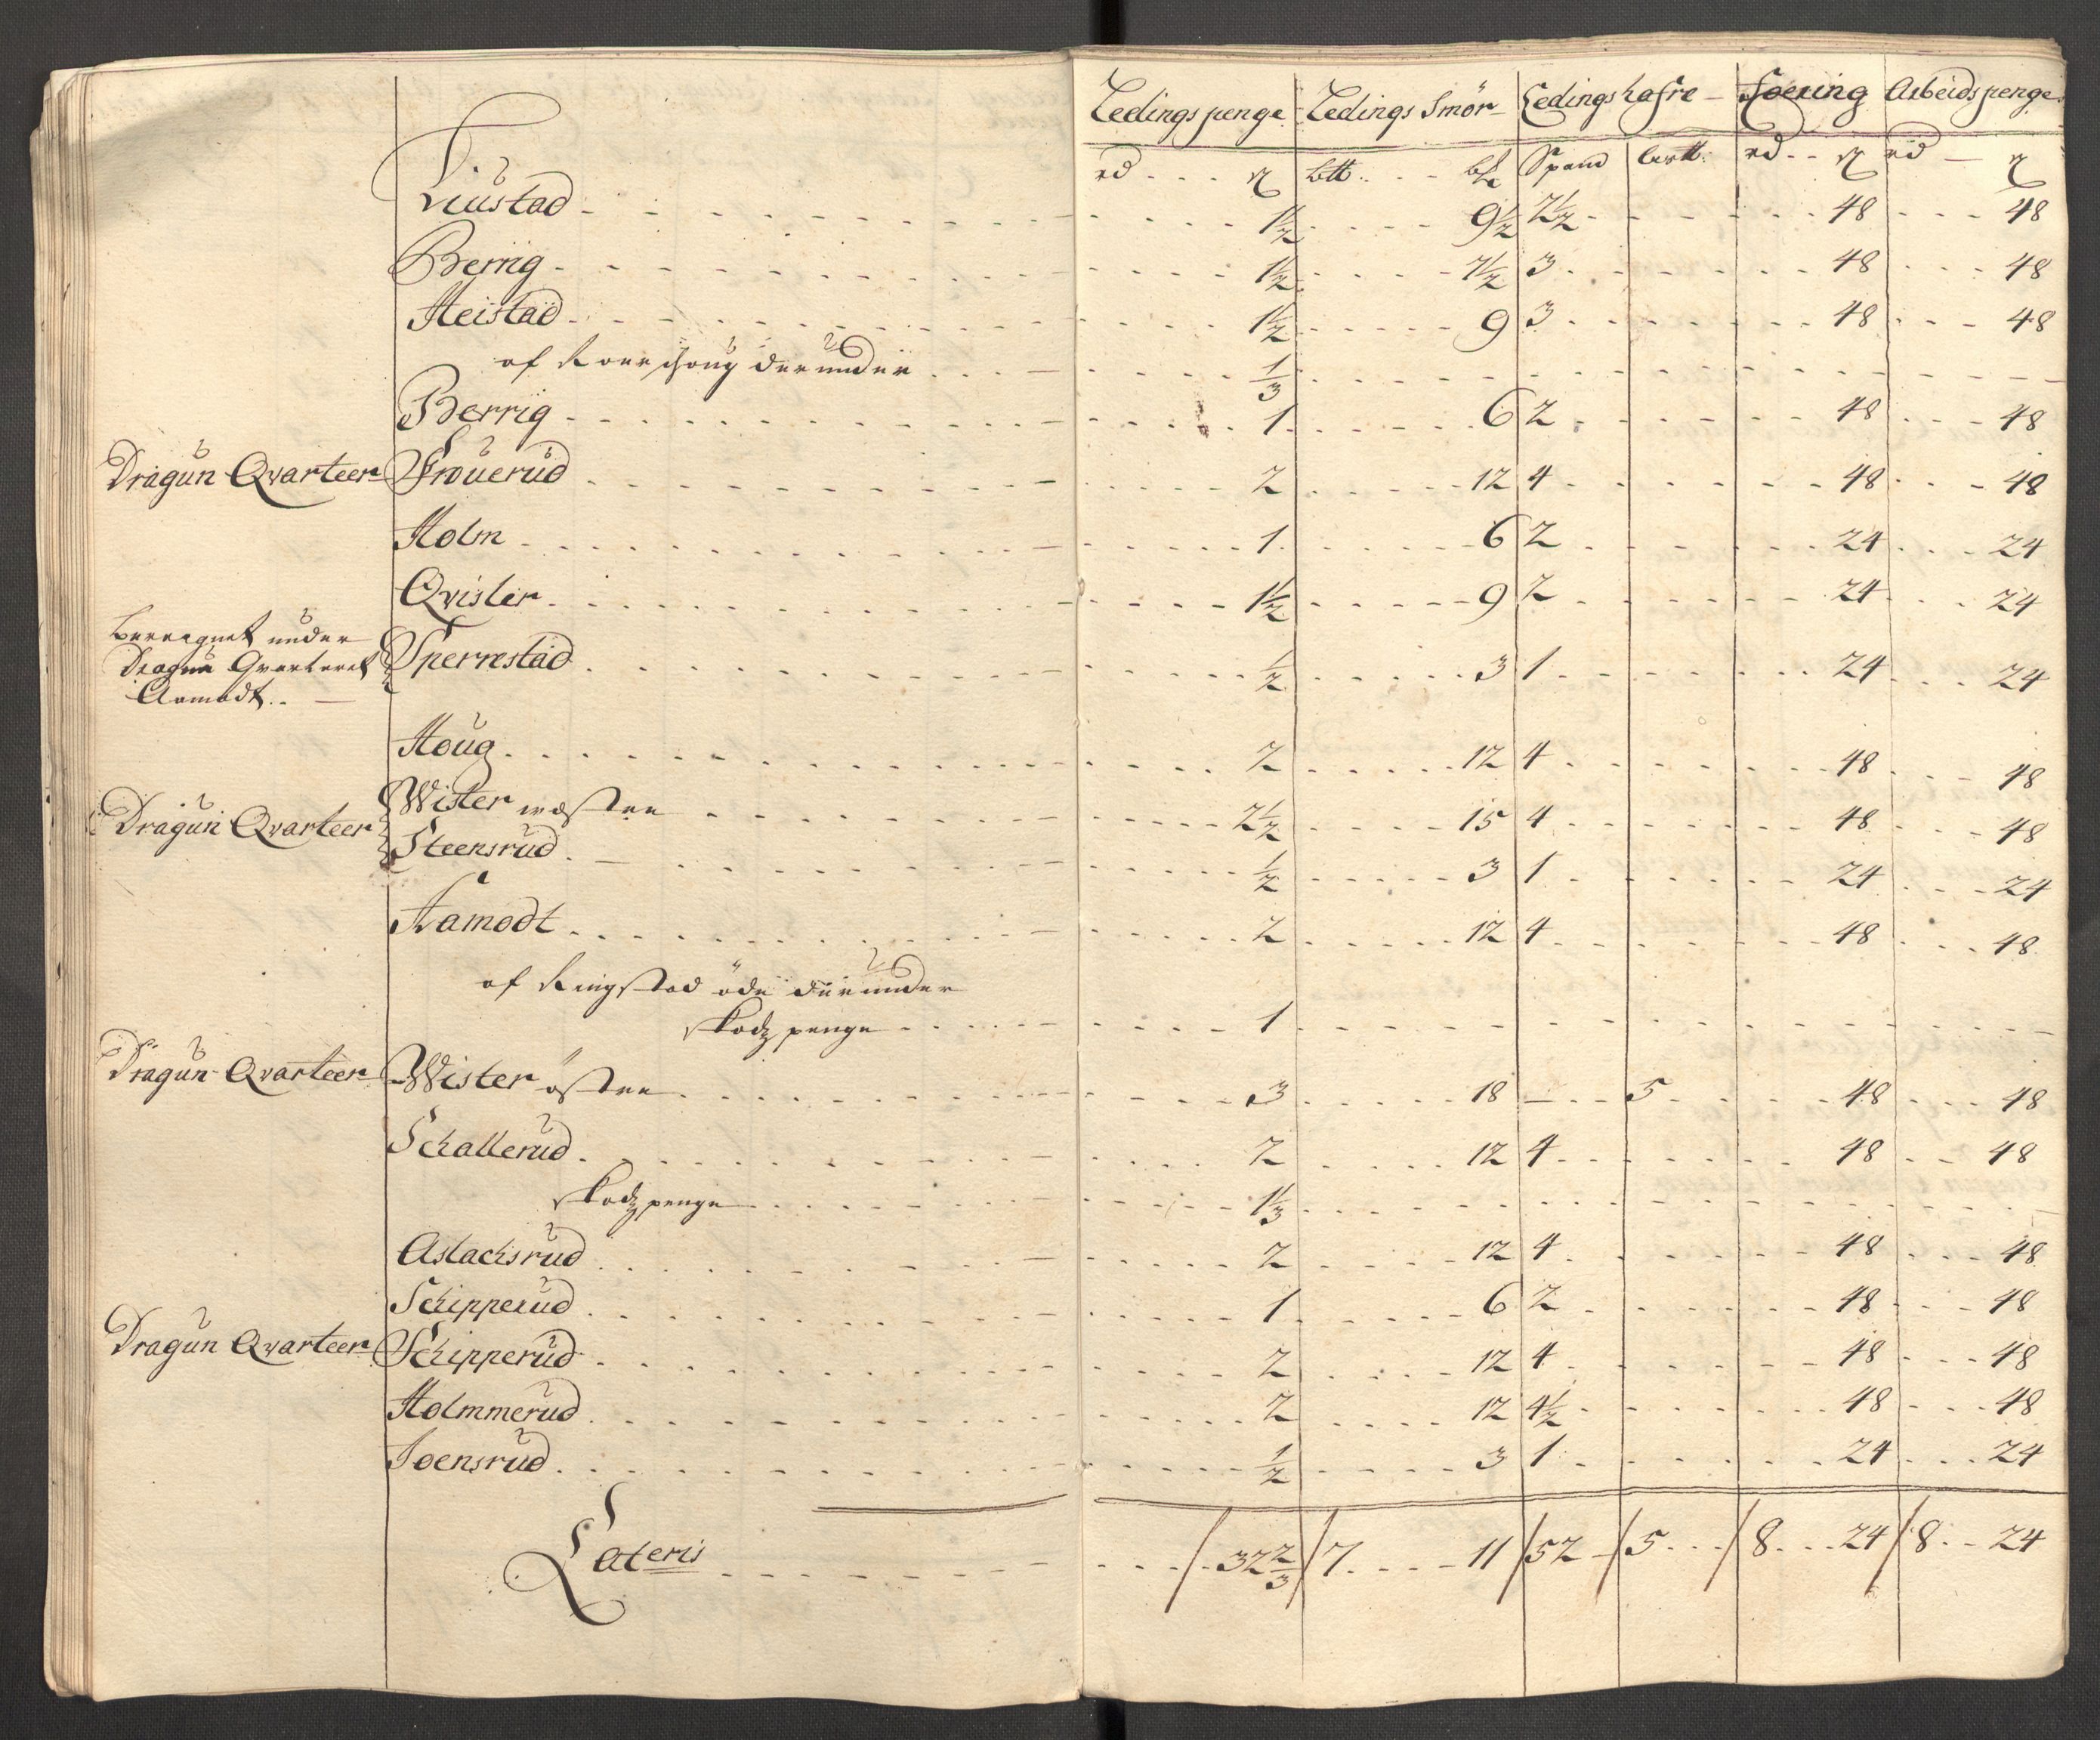 Ledings penge Ledings Smör Ledings hafre Foering Arbeids penge
rd ß btt: bl Spand rd ß rd ß
Liustad 1½ 9½ 2½ 48 48
Berrig 1½ 7½ 3 48 48
Heistad 1½ 9 3 48 48
af derunder 1/3
Berrig 1 6 2 48 48
Dragun Qvarteer Frouerud 2 12 4 48 48
Holm 1 6 2 24 24
Qvisler 1½ 9 2 24 24
Beregnet under
Dragun Qvarteret Sperrestad ½ 3 1 24 24
Aamodt
Houg 2 12 4 48 48
Dragun Qvarteer Wister wæstre 2½ 15 4 48 48
Steensrud ½ 3 1 24 24
Aamodt 2 12 4 48 48
af Ringstad öde derunder
skodz penge 1
Dragun Qvarteer Wister östre 3 18 5 48 48
Schallerud 2 12 4 48 48
skodz penge 1⅓
Aslachsrud 2 12 4 48 48
Schipperud 1 6 2 48 48
Dragun Qvarteer Schipperud 2 12 4 48 48
Holmmerud 2 12 4½ 48 48
Joensrud ½ 3 1 24 24
Lateris 32⅔ 7 11 52 5 8 24 8 24